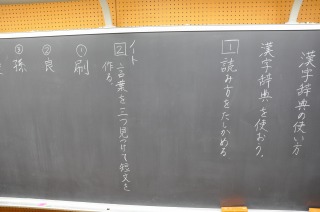 漢字辞典の使い方
漢字辞典を使おう。
1 読み方をたしかめる
2 言葉を二つ見つけて短文を
作る
①刷
②良
③孫